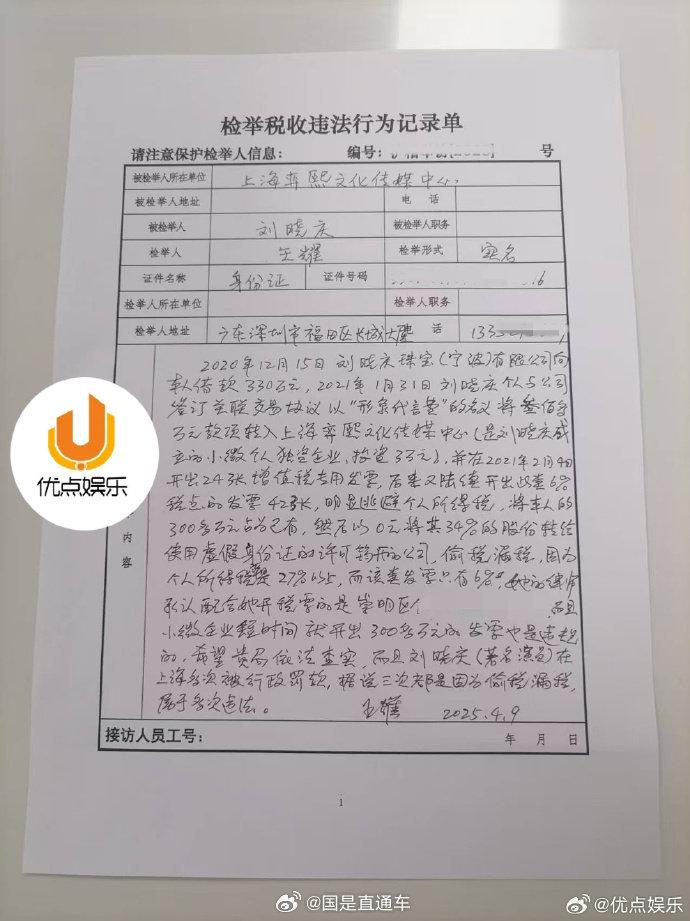 检举税收违法行为记录单
请注意保护检举人信息： 编号： 号
被检举人所在单位 上海弈熙文化传媒中心
被检举人地址 电 话
被检举人 刘晓庆 被检举人职务
检举人 王耀 检举形式 实名
证件名称 身份证 证件号码 6
检举人所在单位 检举人职务
检举人地址 广东深圳市福田区长城大 话 133
2020年12月15日刘晓庆珠宝（宁波）有限公司向
本人借款330万元，2021年1月31日刘晓庆个人与公司
签订关联交易协议以“形象代言费”的名义将叁佰多
万元款项转入上海弈熙文化传媒中心（是刘晓庆成
立的小微个人独资企业，投资3万元），并在2021年2月4日
开出24张增值税专用发票，后来又陆续开出此套6%
税点的发票42张，明显逃避个人所得税，将本人的
300多万元占为己有，然后以0元将其34%的股份转给
使用虚假身份证的许可筠开的公司，偷税漏税，因为
个人所得税是27%以上，而该套发票只有6%，她的律师
承认配合她开税票的是崇明区 而且
小微企业短时间就开出300多万元的发票也是违规
的，希望贵局依法查实，而且刘晓庆（著名演员）在
上海多次被行政罚款，据说三次都是因为偷税漏税，
属于多次违法。 王耀 2025.4.9
内
容
接访人员工号： 年 月 日
1
优点娱乐
@国是直通车
@优点娱乐